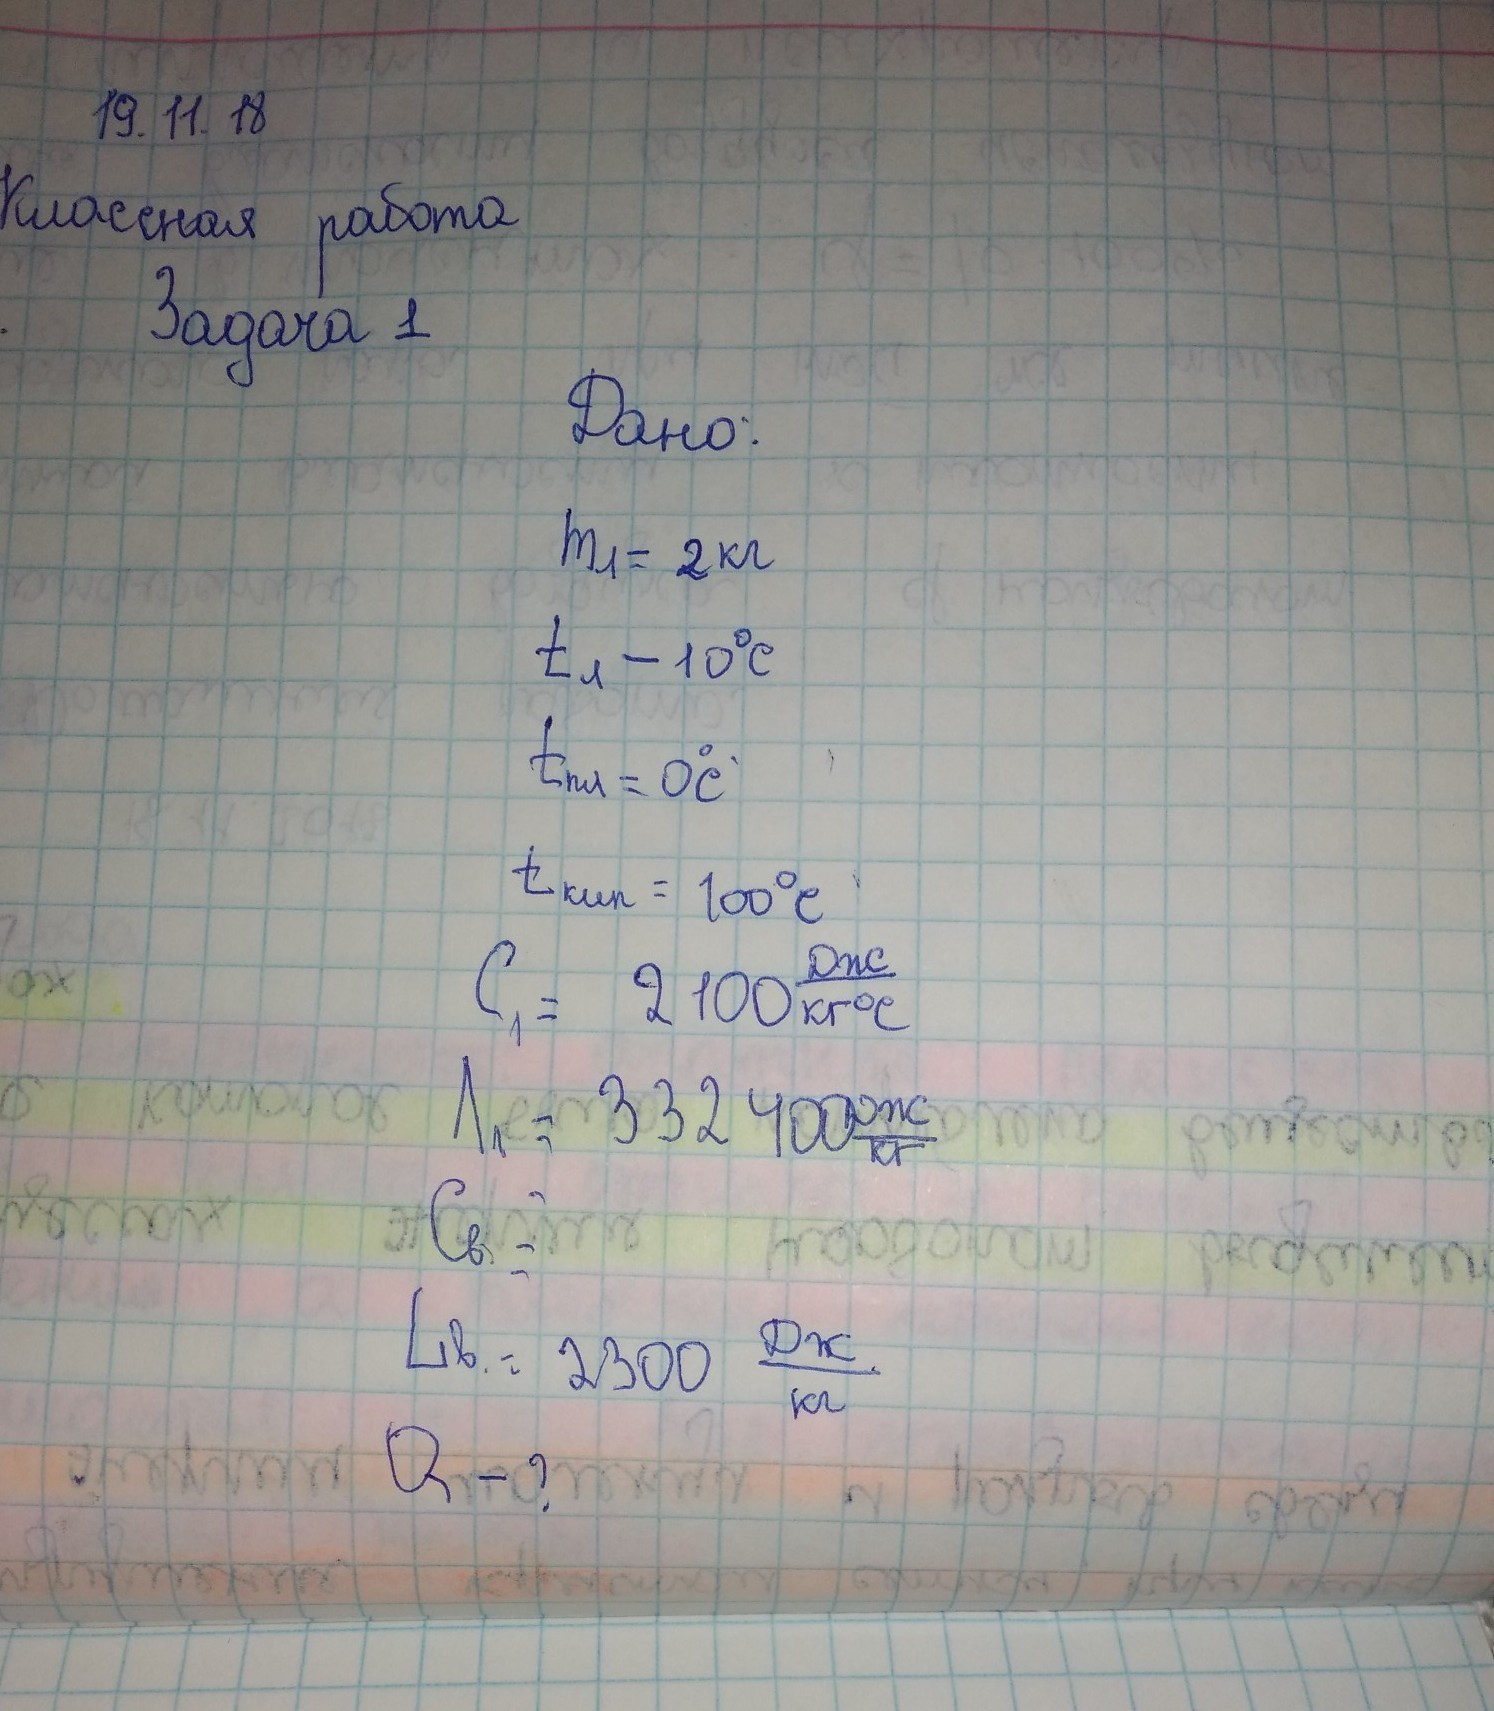 19.11.18
Классная работа
Задача 1
Дано:
m₁ = 2 кг
tл – 10°C
tпл = 0°C
tкип = 100°C
C₁ = 2100 Дж/кг°C
λл = 332400 Дж/кг
Cв =
Lв. = 2300 Дж/кг
Q – ?